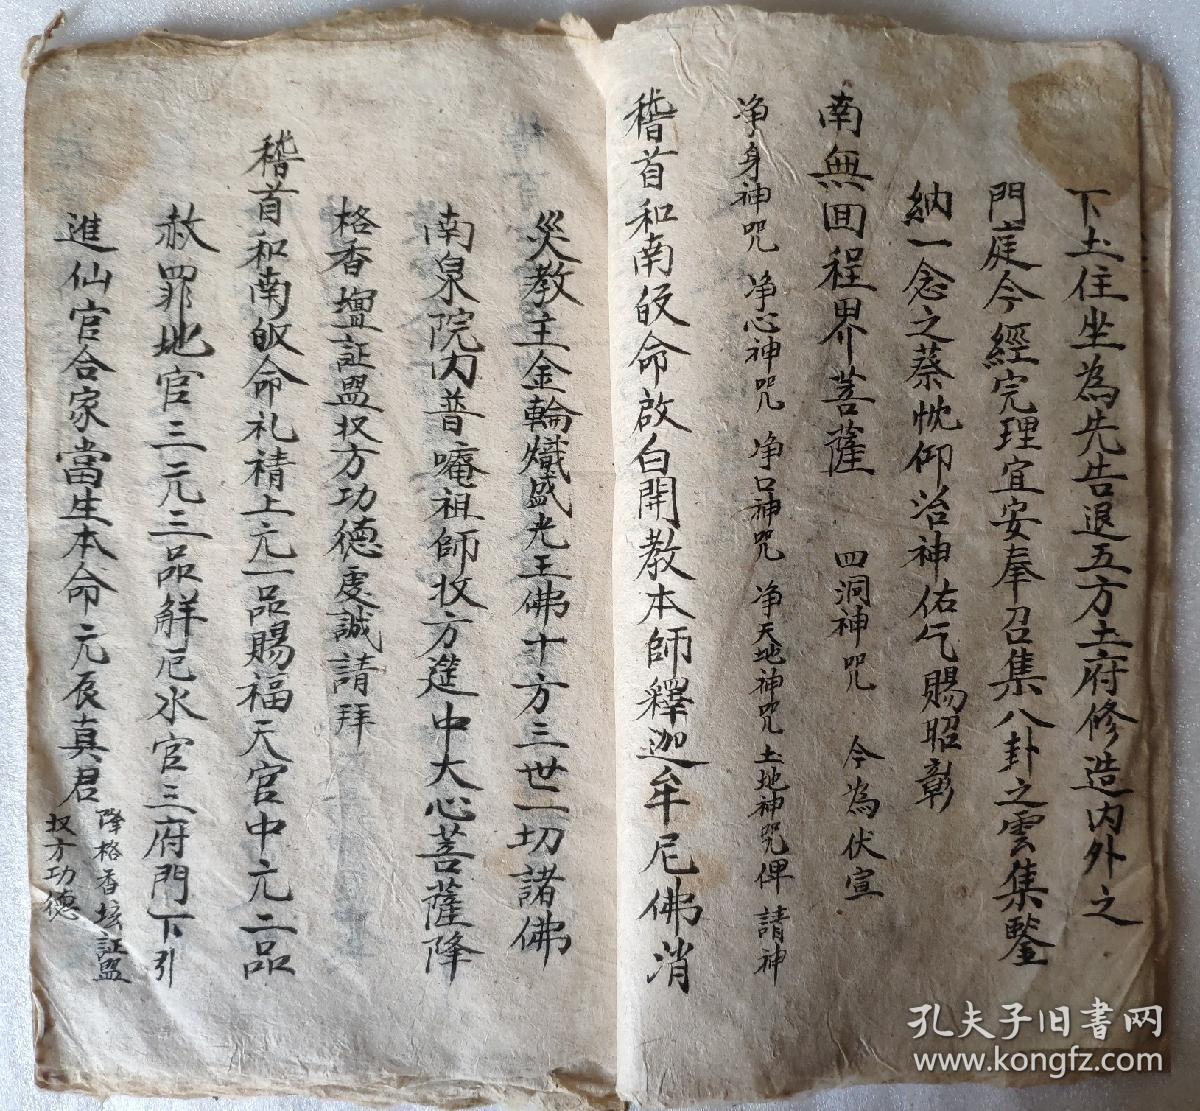 下土住坐為先告退五方土府修造内外之
門庭今經完理宜安奉召集八卦之雲集鑒
納一念之蔡忱仰洽神佑乞賜昭彰
南無回程界菩薩 四洞神咒 今為伏宣
净身神咒 净心神咒 净口神咒 净天地神咒 土地神咒俾 請神
稽首和南皈命啟白開教本師釋迦牟尼佛消
災教主金輪熾盛光王佛十方三世一切諸佛
南泉院内普唵祖師牧方筵中大心菩薩降
格香壇証盟权方功德虔誠請拜
稽首和南皈命礼請上元一品賜福天官中元二品
赦罪地官三元三品解厄水官三府門下引
進仙官合家當生本命元辰真君
降格香坛証盟
权方功德
孔夫子旧書网
www.kongfz.com